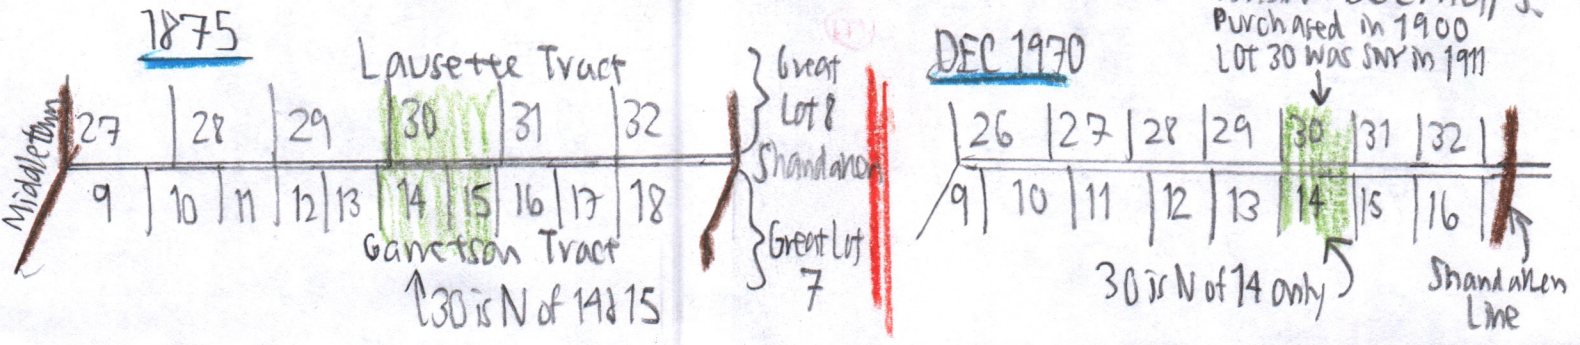 1875
Lausette Tract
27 28 29 30 31 32
Middletown
9 10 11 12 13 14 15 16 17 18
Garretson Tract
↑30 is N of 14 & 15
Great
Lot 8
Shandaken
Great Lot
7
DEC 1970
Purchased in 1900
LOT 30 was in 1911
26 27 28 29 30 31 32
9 10 11 12 13 14 15 16
30 is N of 14 only
Shandaken
Line